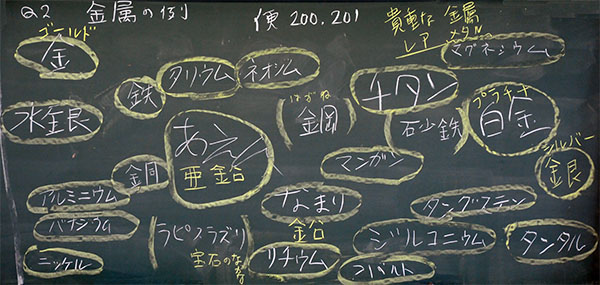 Q2 金属の例 便 200.201
貴重な 金属
レア メタル
ゴールド
金
タリウム
ネオジム
チタン
マグネシウム
鉄
水銀
はがね
(鋼)
(砂鉄)
プラチナ
白金
あえん
亜鉛
マンガン
シルバー
銀
銅
アルミニウム
バナジウム
ニッケル
(ラピスラズリ)
宝石のなまえ
なまり
鉛
リチウム
タングステン
ジルコニウム
コバルト
タンタル